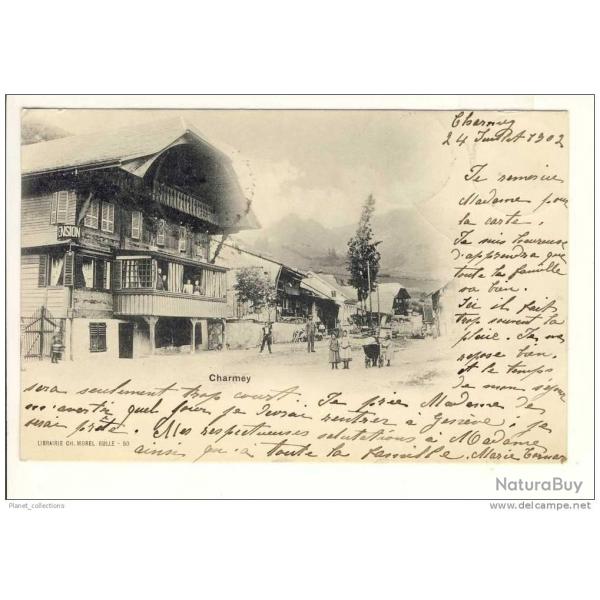 Charmey
24 Juillet 1902
Je remercie
Madame pour
la carte.
Je suis heureuse
d'apprendre que
toute la famille
va bien.
Ici il fait
trop souvent la
pluie. Je me
repose bien.
et le temps
de mon séjour
PENSION
Charmey
sera seulement trop court. Je prie Madame de
m'avertir quel jour je devrai rentrer à Genève, je
serai prête. Mes respectueuses salutations à Madame
LIBRAIRIE CH. MOREL BULLE - 50
ainsi qu'à toute la famille. Marie
NaturaBuy
Planet_collections
www.naturabuy.com